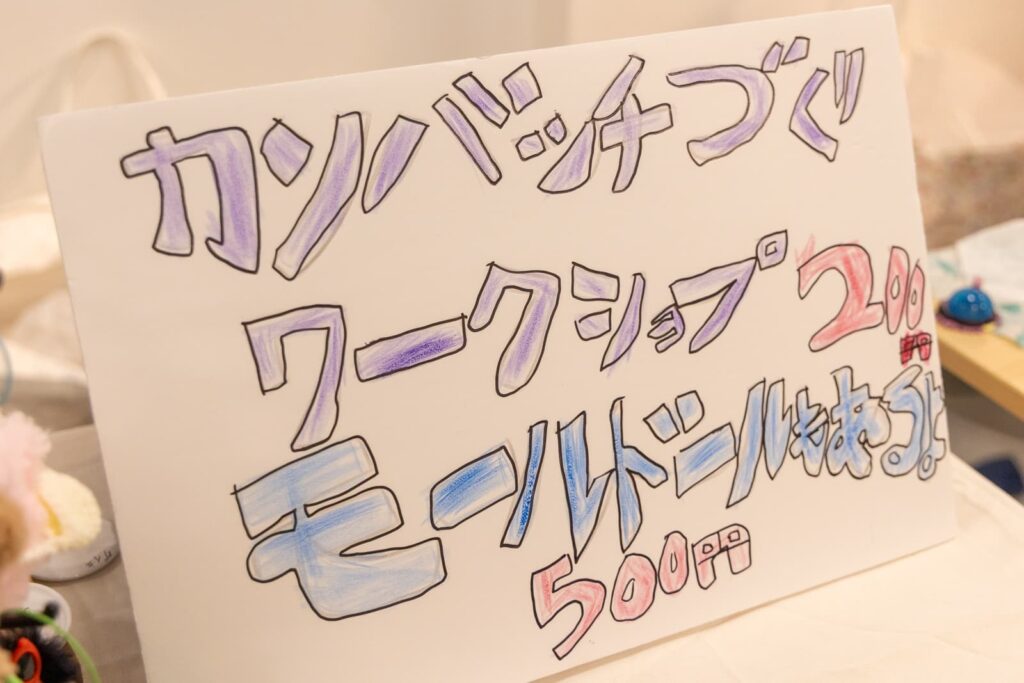 カンバッチづくり
ワークショプ 200円
モールドールもあるよ
500円